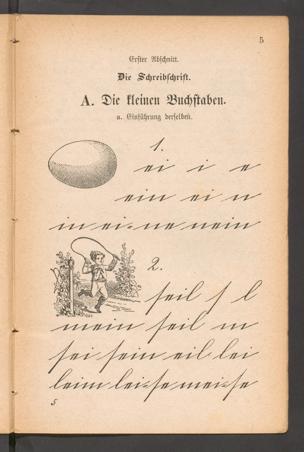 5
Erster Abschnitt.
Die Schreibschrift.
A. Die kleinen Buchstaben.
a. Einführung derselben.
1.
ei i e
ein ei n
in ei-ne nein
2.
seil s l
mein seil m
sei sein eil lei
leim lei-se mei-se
5